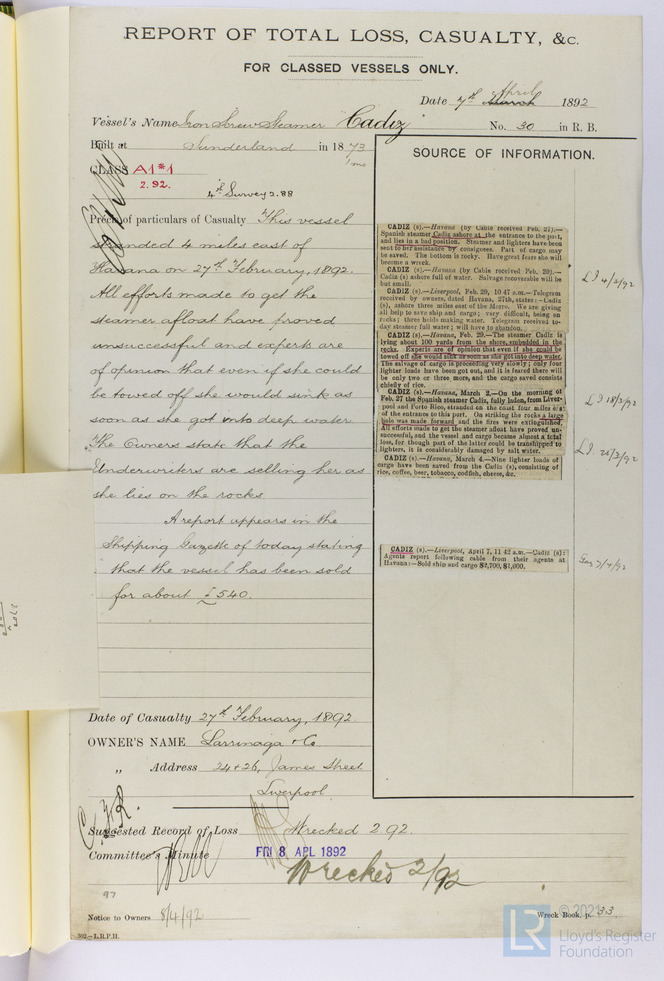 REPORT OF TOTAL LOSS, CASUALTY, &c.
FOR CLASSED VESSELS ONLY.
Date 7th March April 1892
Vessel's Name Iron Screw Steamer "Cadiz No. 30 in R. B.
Built at Sunderland in 1873
CLASS A1*1
2.92.
4th Survey 2.88
Précis of particulars of Casualty This vessel
stranded 4 miles east of
Havana on 27th February, 1892.
All efforts made to get the
steamer afloat have proved
unsuccessful and experts are
of opinion that even if she could
be towed off she would sink as
soon as she got into deep water.
The Owners state that the
Underwriters are selling her as
she lies on the rocks
A report appears in the
Shipping Gazette of today stating
that the vessel has been sold
for about £540.
Date of Casualty 27th February, 1892
OWNER'S NAME Larrinaga & Co
„ Address 24 & 26, James Street
Liverpool
Suggested Record of Loss Wrecked 2.92.
Committee's Minute FRI 8 APL 1892
Wrecked 2/92
97
Notice to Owners 8/4/92
Wreck Book, p. 33.
302—L.R.P.H.
SOURCE OF INFORMATION.
CADIZ (s).—Havana (by Cable received Feb. 27).—
Spanish steamer Cadiz ashore at the entrance to the port,
and lies in a bad position. Steamer and lighters have been
sent to her assistance by consignees. Part of cargo may
be saved. The bottom is rocky. Have great fears she will
become a wreck.
CADIZ (s).—Havana (by Cable received Feb. 29).—
Cadiz (s) ashore full of water. Salvage recoverable will be
but small.
CADIZ (s).—Liverpool, Feb. 29, 10 47 a.m.—Telegram
received by owners, dated Havana, 27th, states:—Cadiz
(s), ashore three miles east of the Morro. We are giving
all help to save ship and cargo; very difficult, being on
rocks; three holds making water. Telegram received to-
day steamer full water; will have to abandon.
CADIZ (s).—Havana, Feb. 29.—The steamer Cadiz is
lying about 100 yards from the shore, embedded in the
rocks. Experts are of opinion that even if she could be
towed off she would sink as soon as she got into deep water.
The salvage of cargo is proceeding very slowly; only four
lighter loads have been got out, and it is feared there will
be only two or three more, and the cargo saved consists
chiefly of rice.
CADIZ (s).—Havana, March 2.—On the morning of
Feb. 27 the Spanish steamer Cadiz, fully laden, from Liver-
pool and Porto Rico, stranded on the coast four miles E/S
of the entrance to this port. On striking the rocks a large
hole was made forward and the fires were extinguished.
All efforts made to get the steamer afloat have proved un-
successful, and the vessel and cargo became almost a total
loss, for though part of the latter could be transhipped to
lighters, it is considerably damaged by salt water.
CADIZ (s).—Havana, March 4.—Nine lighter loads of
cargo have been saved from the Cadiz (s), consisting of
rice, coffee, beer, tobacco, codfish, cheese, &c.
CADIZ (s).—Liverpool, April 7, 11 42 a.m.—Cadiz (s):
Agents report following cable from their agents at
Havana:—Sold ship and cargo $2,700, $1,000.
LI 4/3/92
LI 18/3/92
LI 21/3/92
Gaz 7/4/92
LR © 2021
Lloyd's Register
Foundation